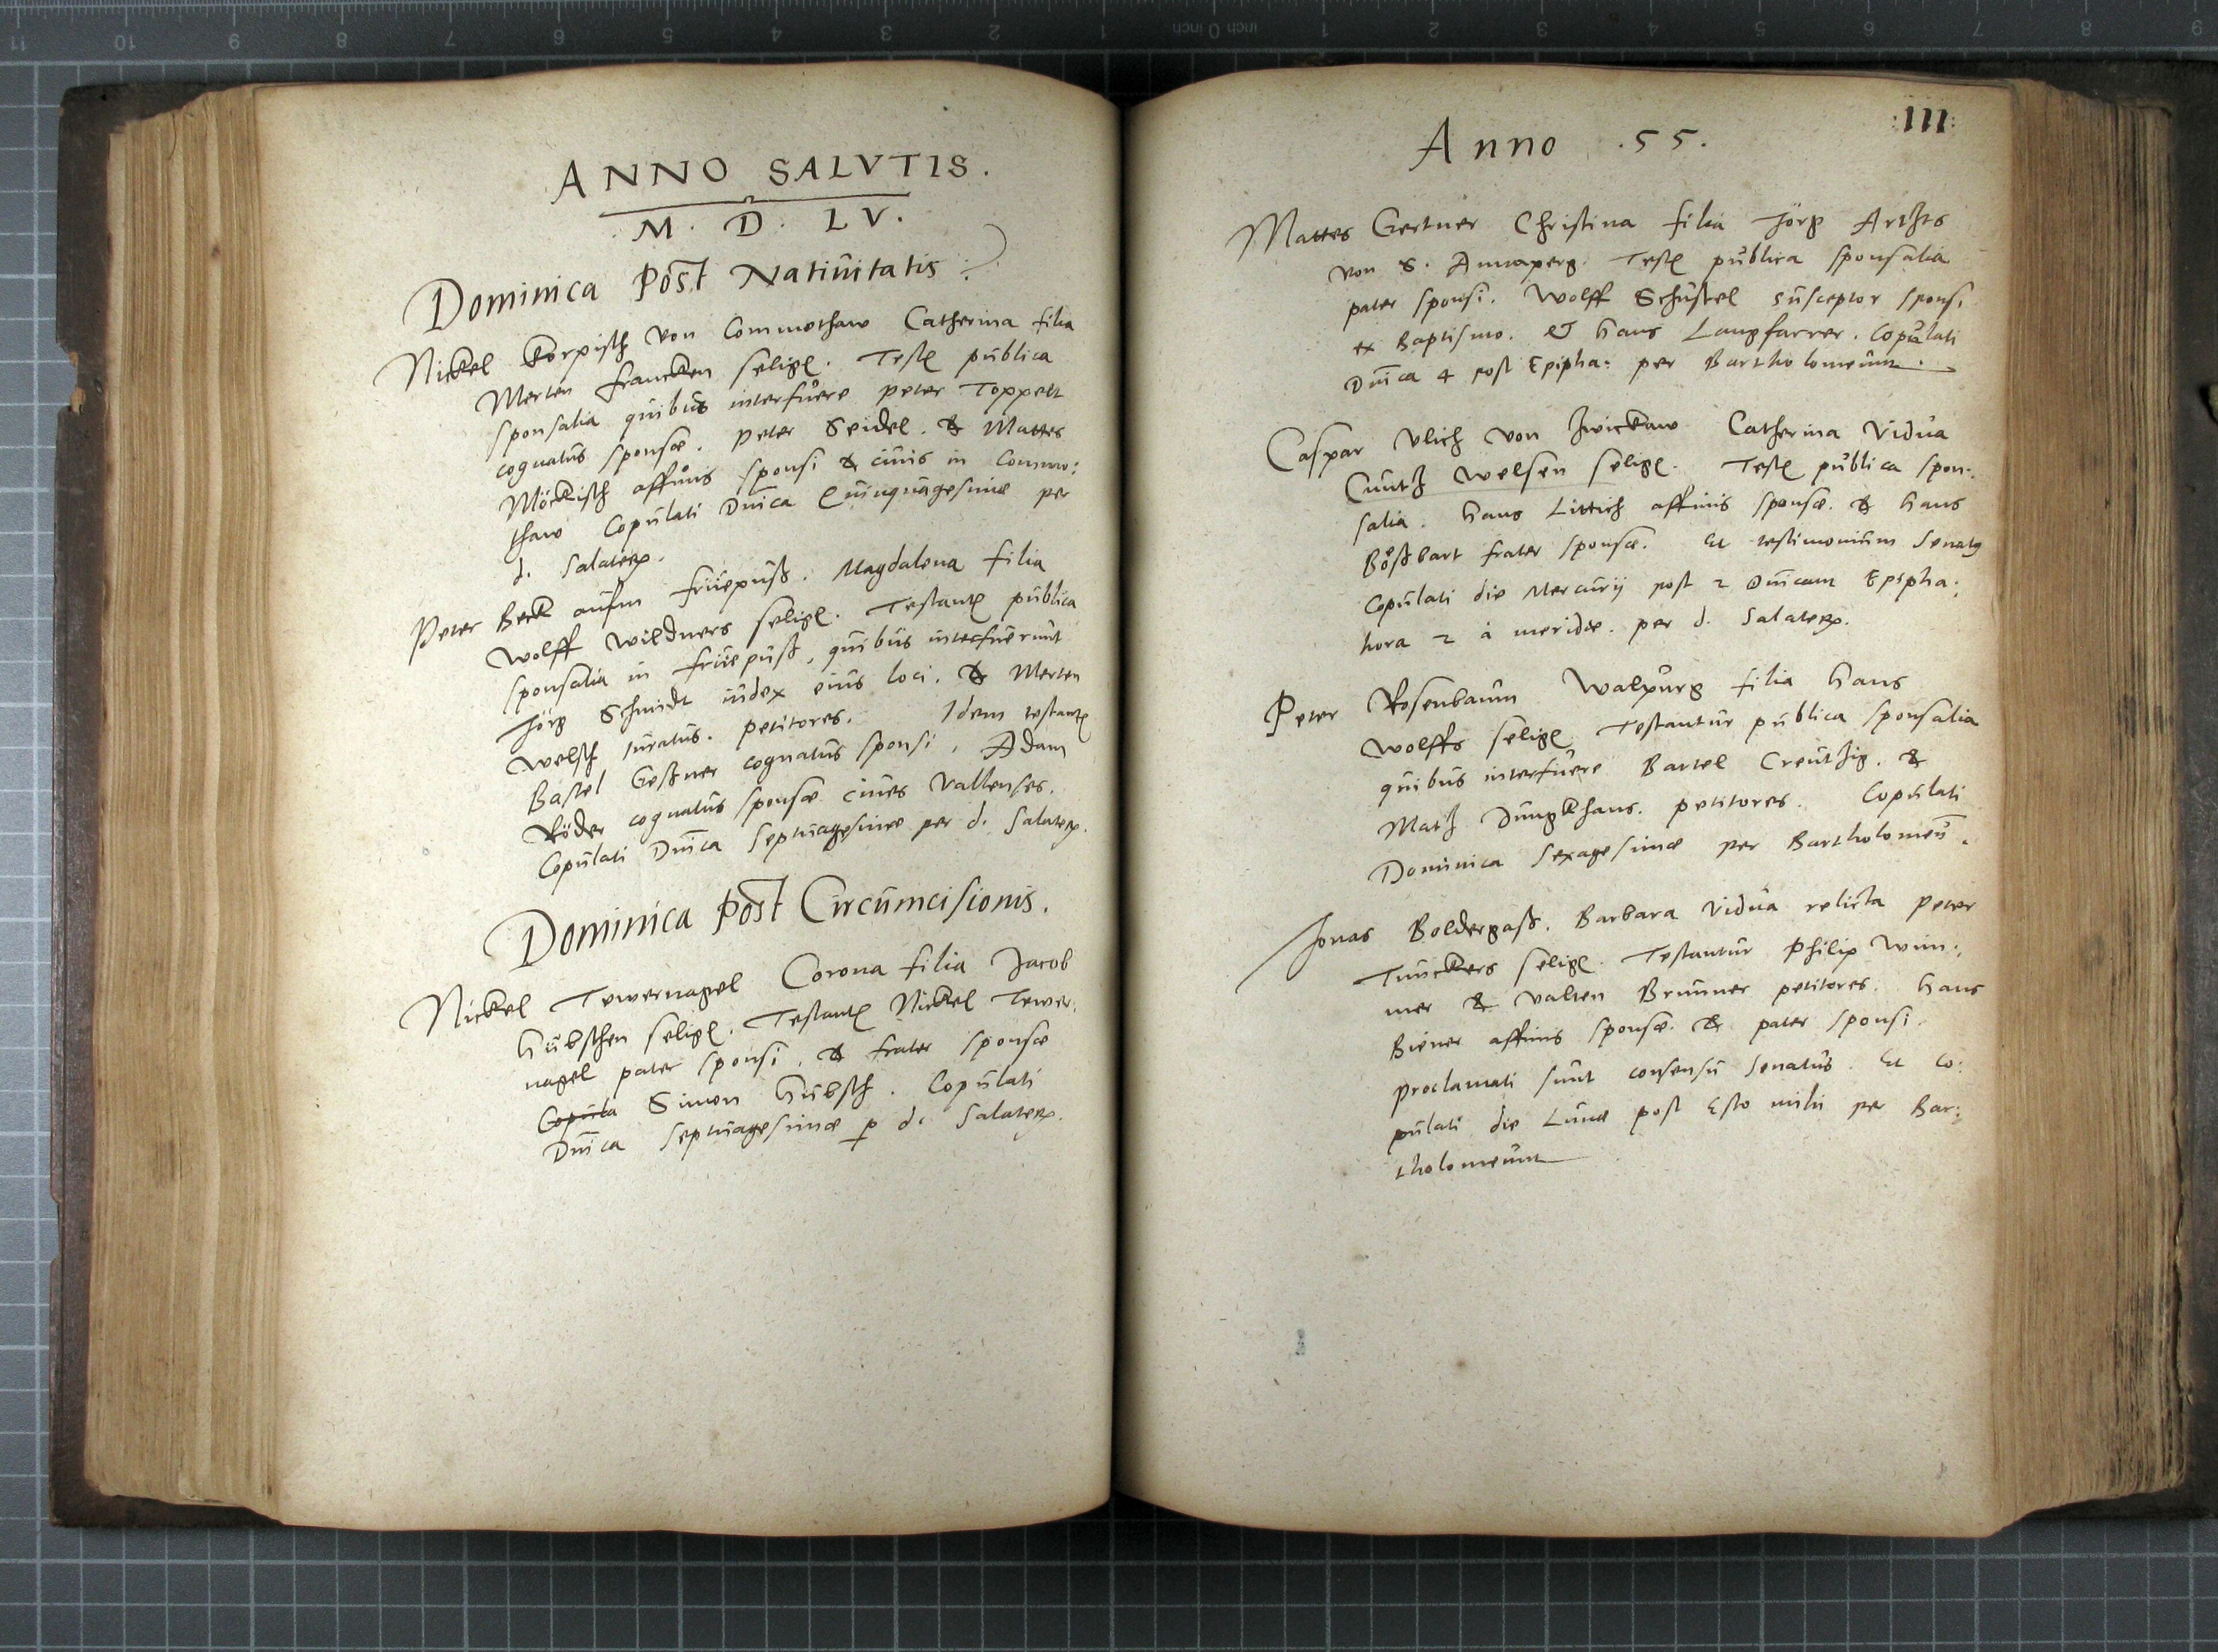 ANNO SALVTIS.
M. D. LV.
Dominica Post Natiuitatis
Nickel Körpisch von Commothaw Catherina filia
Merten francken selige. Teste publica
sponsalia quibus interfuere peter Toppelt
cognatus sponsæ. peter Seidel. & Mattes
Möckisch affinis sponsi & ciuis in Commo:
thaw Copulati Dnica Quinquagesimæ per
d. Salater.
Peter Beck aufm früepuß. Magdalena filia
Wolff Wildners selige. Testant publica
sponsalia in früepuß, quibus interfuerunt
Jörg Schmidt iudex eius loci. & Merten
Welsch iuratus. petitores. Idem testant
Bastel Geßner cognatus sponsi. Adam
Röder cognatus sponsæ ciues Vallenses.
Copulati Dnica Septuagesimæ per d. Salater.
Dominica Post Circumcisionis.
Nickel Tewernagel Corona filia Jacob
Hübschen selige. Testant Nickel Tewer:
nagel pater sponsi. & frater sponsæ
Copula Simon Hübsch. Copulati
Dnica Septuagesimæ p d. Salater.
:111:
Anno .55.
Mattes Gertner Christina filia Jörg Artzts
von S. Annaperg. Teste publica sponsalia
pater sponsi. Wolff Schustel susceptor sponsi
ex Baptismo. & Hans Langfarrer. Copulati
Dnica 4 post Epipha: per Bartholomeum.
Caspar Vlich von Zwickaw Catherina Vidua
Cuntz Welsen selige. Teste publica spon:
salia. Hans Littich affinis sponsæ. & Hans
Bößbart frater sponsæ. Et testimonium Senatus
Copulati die Mercurij post 2 Dnicam Epipha:
hora 2 à meridie. per d. Salater.
Peter Rosenbaum Walpurg filia Hans
Wolffs selige. Testantur publica sponsalia
quibus interfuere Bartel Creutzig. &
Matz Jungkhans. petitores. Copulati
Dominica Sexagesimæ per Bartholomeū.
Jonas Boldergaß. Barbara Vidua relicta Peter
Tunckers selige. Testantur Philip Wim:
mer & Valten Brunner petitores. Hans
Biener affinis sponsæ. & pater sponsi.
proclamati sunt consensu Senatus. Et co:
pulati die Lunæ post Esto mihi per Bar:
tholomeum